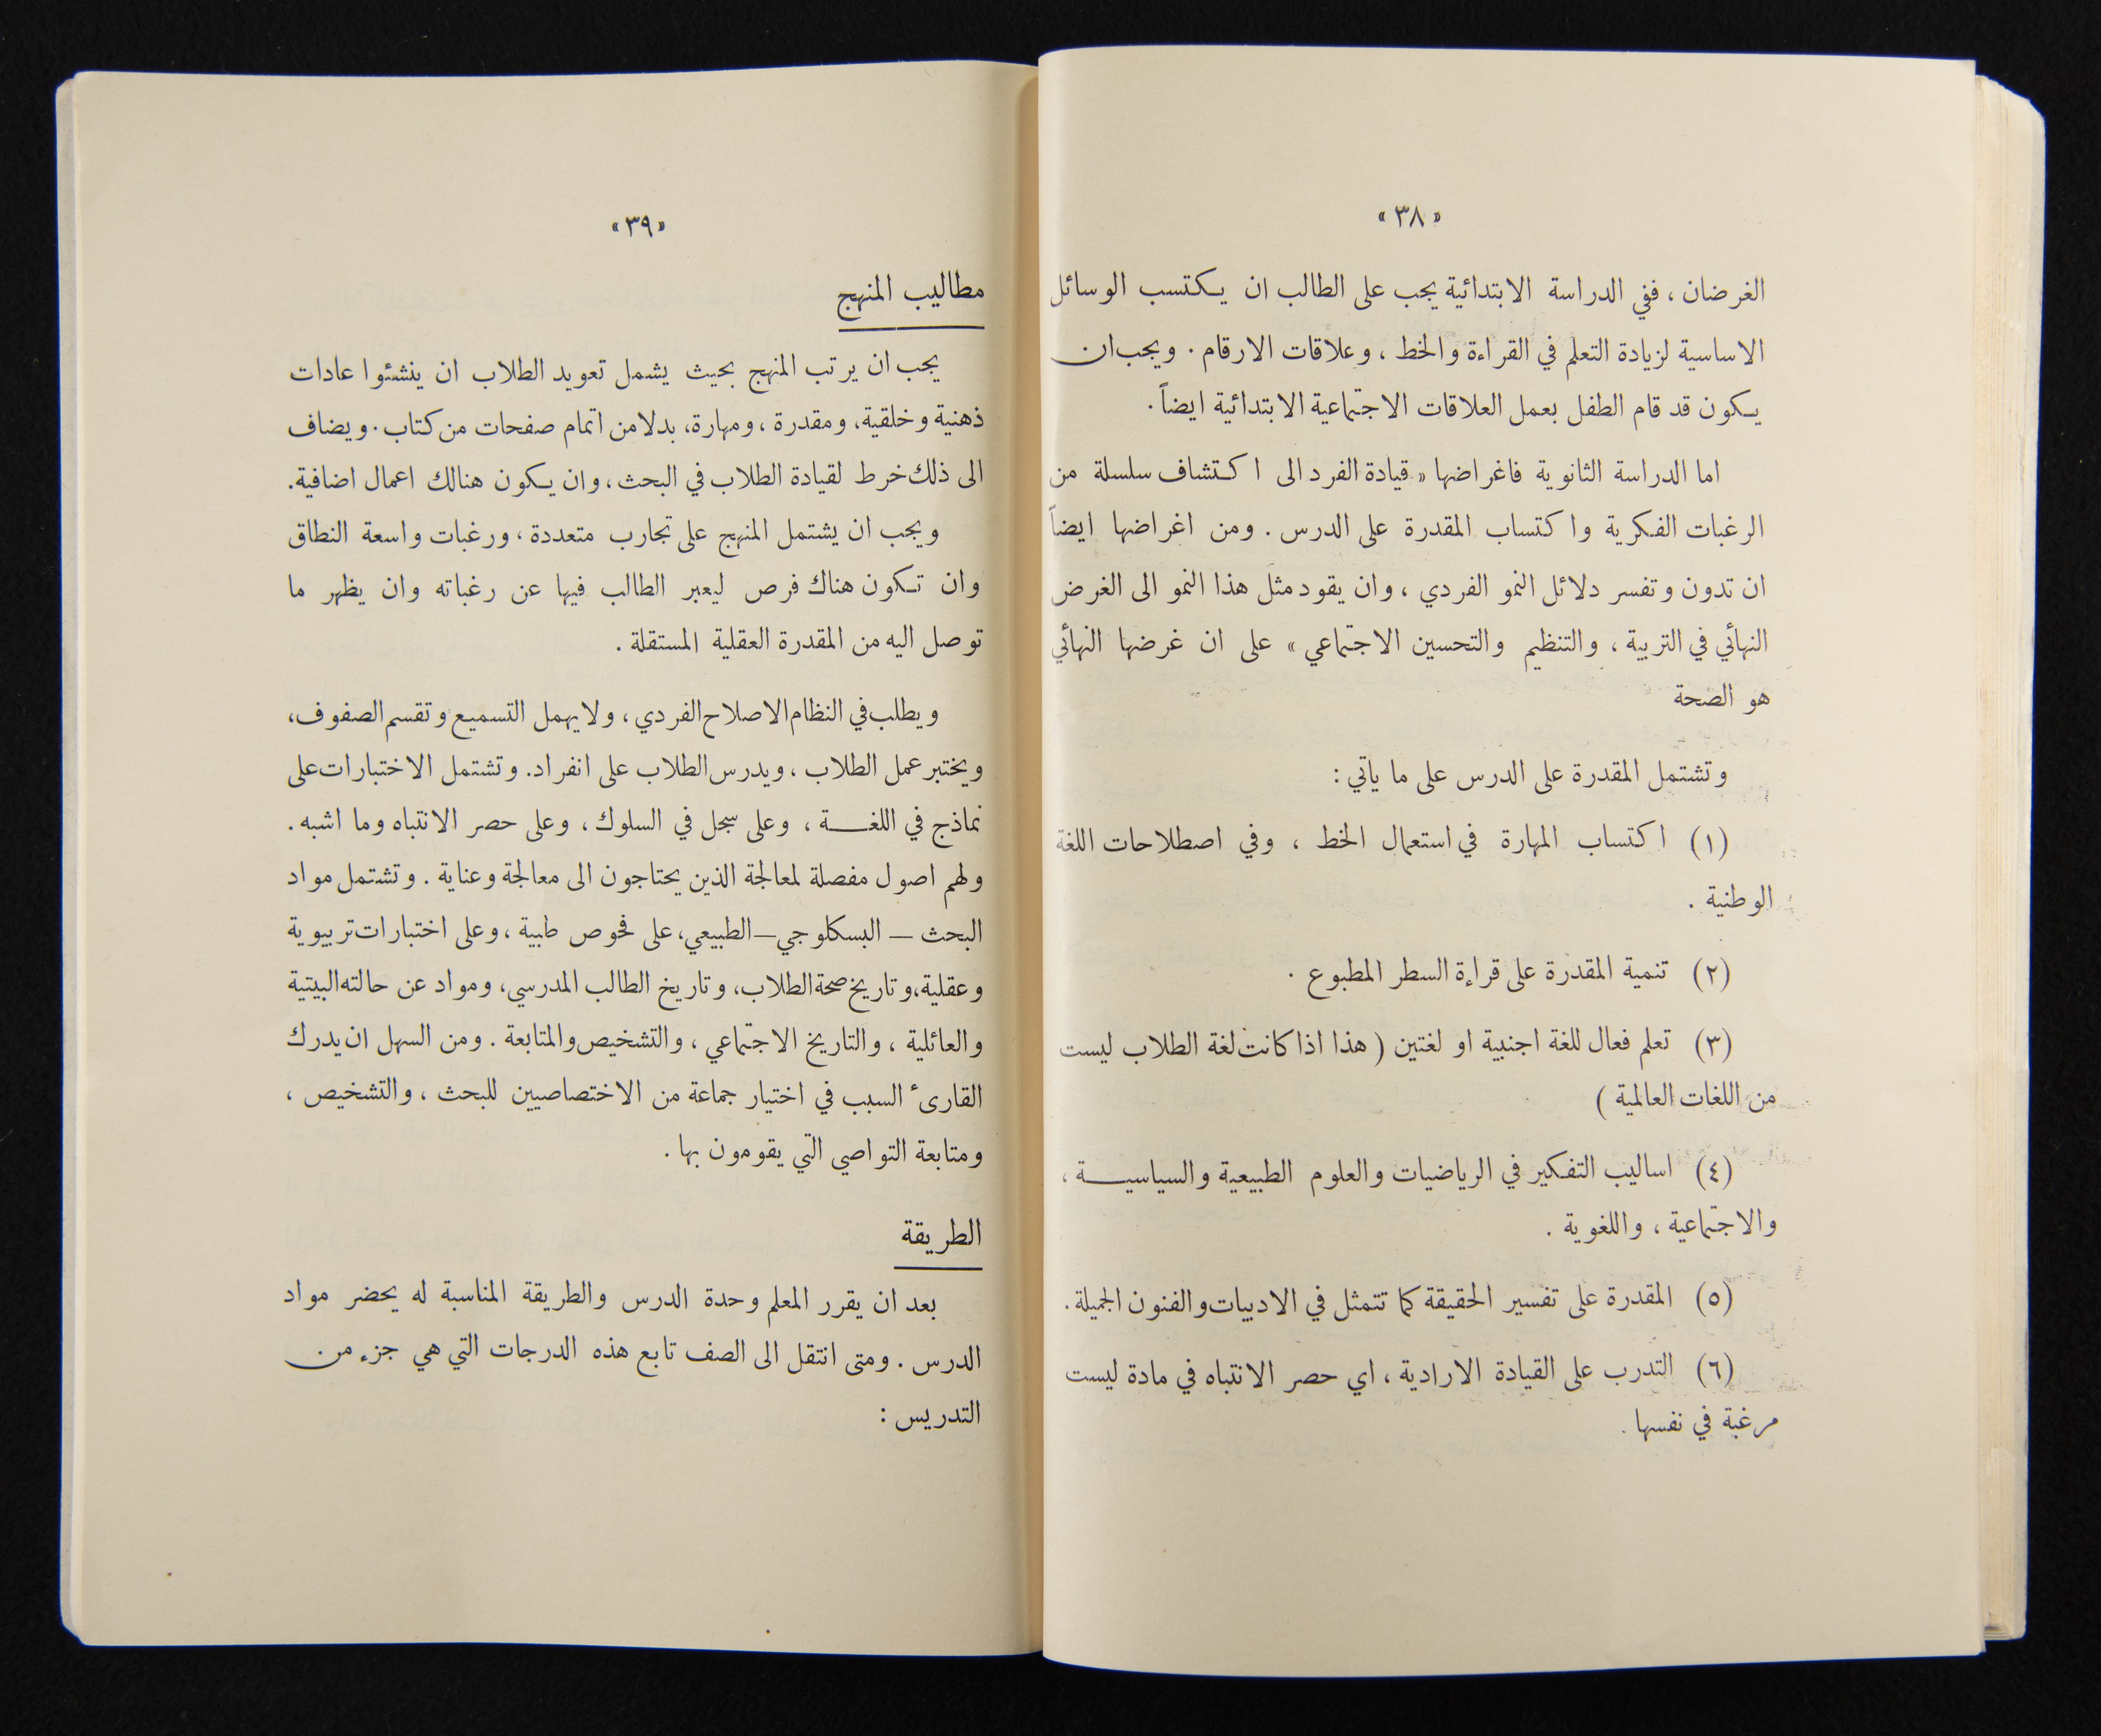 «٣٨»
الغرضان ، ففي الدراسة الابتدائية يجب على الطالب ان يكتسب الوسائل
الاساسية لزيادة التعلم في القراءة والخط ، وعلاقات الارقام . ويجب ان
يكون قد قام الطفل بعمل العلاقات الاجتماعية الابتدائية ايضاً .
اما الدراسة الثانوية فاغراضها « قيادة الفرد الى اكتشاف سلسلة من
الرغبات الفكرية واكتساب المقدرة على الدرس . ومن اغراضها ايضاً
ان تدون وتفسر دلائل النمو الفردي ، وان يقود مثل هذا النمو الى الغرض
النهائي في التربية ، والتنظيم والتحسين الاجتماعي » على ان غرضها النهائي
هو الصحة
وتشتمل المقدرة على الدرس على ما ياتي :
(١) اكتساب المهارة في استعمال الخط ، وفي اصطلاحات اللغة
الوطنية .
(٢) تنمية المقدرة على قراءة السطر المطبوع .
(٣) تعلم فعال للغة اجنبية او لغتين ( هذا اذا كانت لغة الطلاب ليست
من اللغات العالمية )
(٤) اساليب التفكير في الرياضيات والعلوم الطبيعية والسياسيــة ،
والاجتماعية ، واللغوية .
(٥) المقدرة على تفسير الحقيقة كما تتمثل في الادبيات والفنون الجميلة .
(٦) التدرب على القيادة الارادية ، اي حصر الانتباه في مادة ليست
مرغبة في نفسها .
«٣٩»
مطاليب المنهج
يجب ان يرتب المنهج بحيث يشمل تعويد الطلاب ان ينشئوا عادات
ذهنية وخلقية ، ومقدرة ، ومهارة ، بدلا من اتمام صفحات من كتاب . ويضاف
الى ذلك خرط لقيادة الطلاب في البحث ، وان يكون هنالك اعمال اضافية .
ويجب ان يشتمل المنهج على تجارب متعددة ، ورغبات واسعة النطاق
وان تكون هناك فرص ليعبر الطالب فيها عن رغباته وان يظهر ما
توصل اليه من المقدرة العقلية المستقلة .
ويطلب في النظام الاصلاح الفردي ، ولا يهمل التسميع وتقسم الصفوف ،
ويختبر عمل الطلاب ، ويدرس الطلاب على انفراد . وتشتمل الاختبارات على
نماذج في اللغــة ، وعلى سجل في السلوك ، وعلى حصر الانتباه وما اشبه .
ولهم اصول مفصلة لمعالجة الذين يحتاجون الى معالجة وعناية . وتشتمل مواد
البحث — البسكلوجي — الطبيعي ، على فحوص طبية ، وعلى اختبارات تربيوية
وعقلية ، وتاريخ صحة الطلاب ، وتاريخ الطالب المدرسي ، ومواد عن حالته البيتية
والعائلية ، والتاريخ الاجتماعي ، والتشخيص والمتابعة . ومن السهل ان يدرك
القارىء السبب في اختيار جماعة من الاختصاصيين للبحث ، والتشخيص ،
ومتابعة التواصي التي يقومون بها .
الطريقة
بعد ان يقرر المعلم وحدة الدرس والطريقة المناسبة له يحضر مواد
الدرس . ومتى انتقل الى الصف تابع هذه الدرجات التي هي جزء من
التدريس :